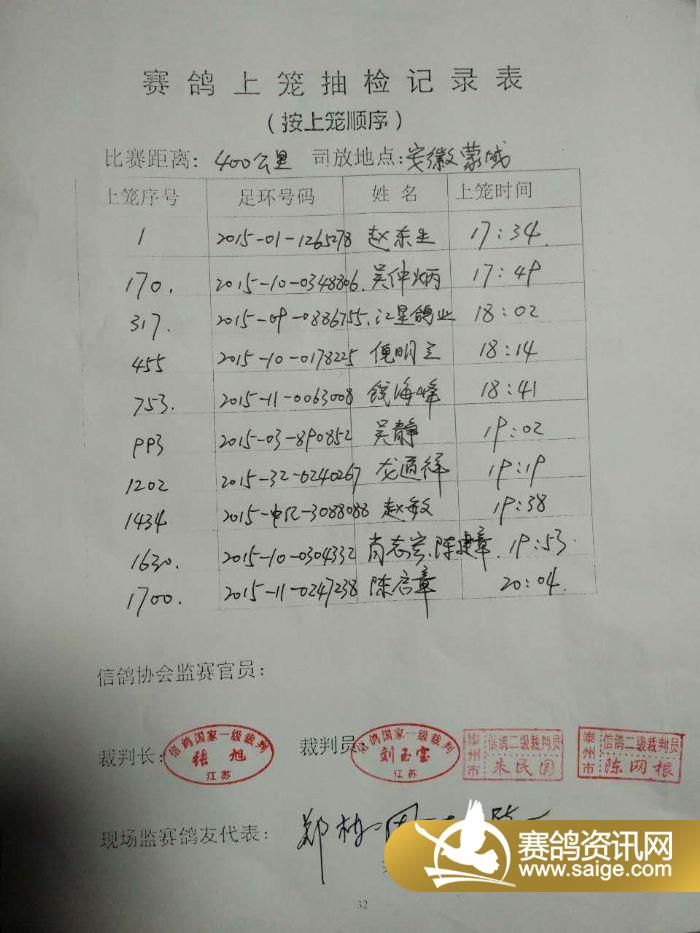 赛鸽上笼抽检记录表
(按上笼顺序)
比赛距离: 400公里 司放地点: 安徽蒙城
上笼序号 足环号码 姓名 上笼时间
1 2015-01-1265278 赵东生 17:34
170. 2015-10-0348806. 吴仲炳 17:49
317. 2015-09-0886755. 江星鸽业 18:02
455 2015-10-0178225 倪明立 18:14
753. 2015-11-0063008 钱海峰 18:41
993 2015-03-890852 吴静 19:02
1202 2015-32-0240267 龙通祥 19:19
1434 2015-中凡-3088088 赵敏 19:38
1630. 2015-10-0304332 肖志宏、陈建章. 19:53
1700. 2015-11-0247238 陈启章 20:04.
信鸽协会监赛官员:
裁判长: 信鸽国家一级裁判 张旭 江苏 裁判员: 信鸽国家一级裁判 刘玉宝 江苏 泰州市 信鸽二级裁判员 朱民国 泰州市 信鸽二级裁判员 陈网根
现场监赛鸽友代表: 郑
赛鸽资讯网
www.saige.com
32